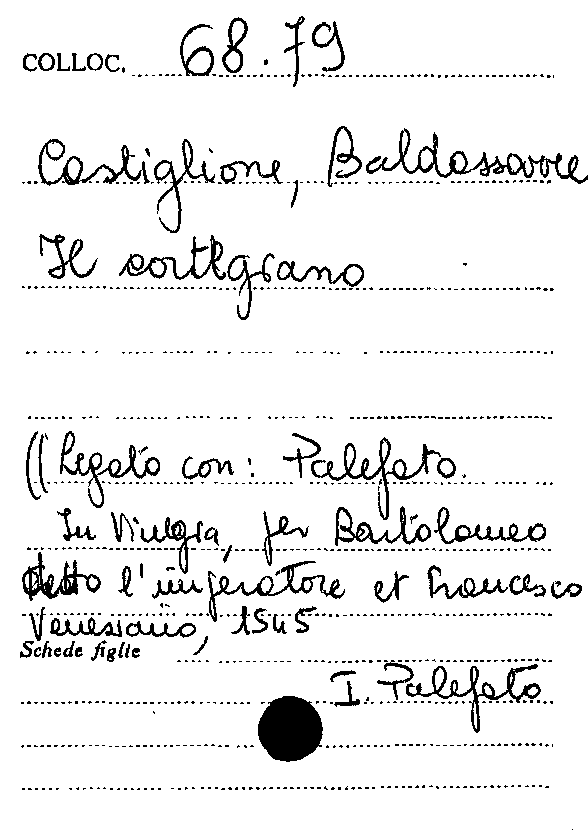 COLLOC. 68.79
Castiglione, Baldassarre
Il cortegiano
((Legato con: Palefato.
In Vinegia, per Bortolomeo
detto l'imperatore et Francesco
Venesiano, 1545
Schede figlie
I. Palefato